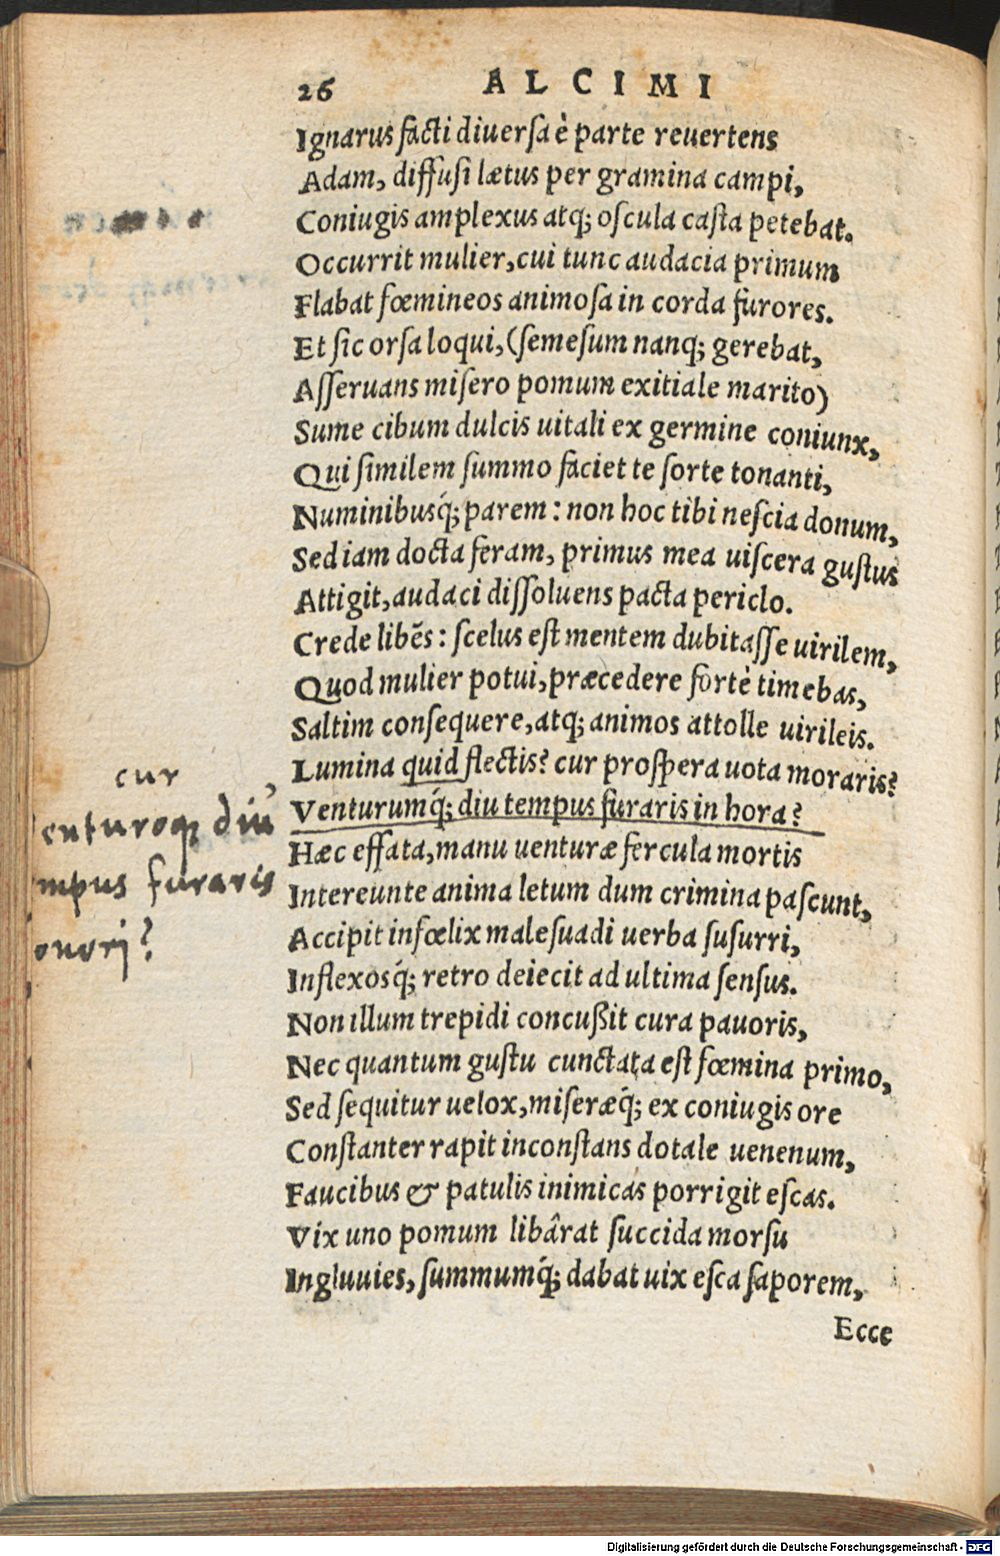 26 ALCIMI
Ignarus facti diuersa è parte reuertens
Adam, diffusi lætus per gramina campi,
Coniugis amplexus atq; oscula casta petebat.
Occurrit mulier, cui tunc audacia primum
Flabat fœmineos animosa in corda furores.
Et sic orsa loqui, (semesum nanq; gerebat,
Asseruans misero pomum exitiale marito)
Sume cibum dulcis uitali ex germine coniunx,
Qui similem summo faciet te sorte tonanti,
Numinibusq́; parem: non hoc tibi nescia donum,
Sed iam docta feram, primus mea uiscera gustus
Attigit, audaci dissoluens pacta periclo.
Crede libẽs: scelus est mentem dubitasse uirilem,
Quod mulier potui, præcedere fortè timebas,
Saltim consequere, atq; animos attolle uirileis.
Lumina quid flectis? cur prospera uota moraris?
Venturumq́; diu tempus furaris in hora?
Hæc effata, manu uenturæ fercula mortis
Intereunte anima letum dum crimina pascunt,
Accipit infœlix malesuadi uerba susurri,
Inflexosq́; retro deiecit ad ultima sensus.
Non illum trepidi concußit cura pauoris,
Nec quantum gustu cunctata est fœmina primo,
Sed sequitur uelox, miseræq́; ex coniugis ore
Constanter rapit inconstans dotale uenenum,
Faucibus & patulis inimicas porrigit escas.
Vix uno pomum libârat succida morsu
Ingluuies, summumq́; dabat uix esca saporem,
Ecce
cur
enturoq; diu
mpus furaris
onori?
Digitalisierung gefördert durch die Deutsche Forschungsgemeinschaft - DFG